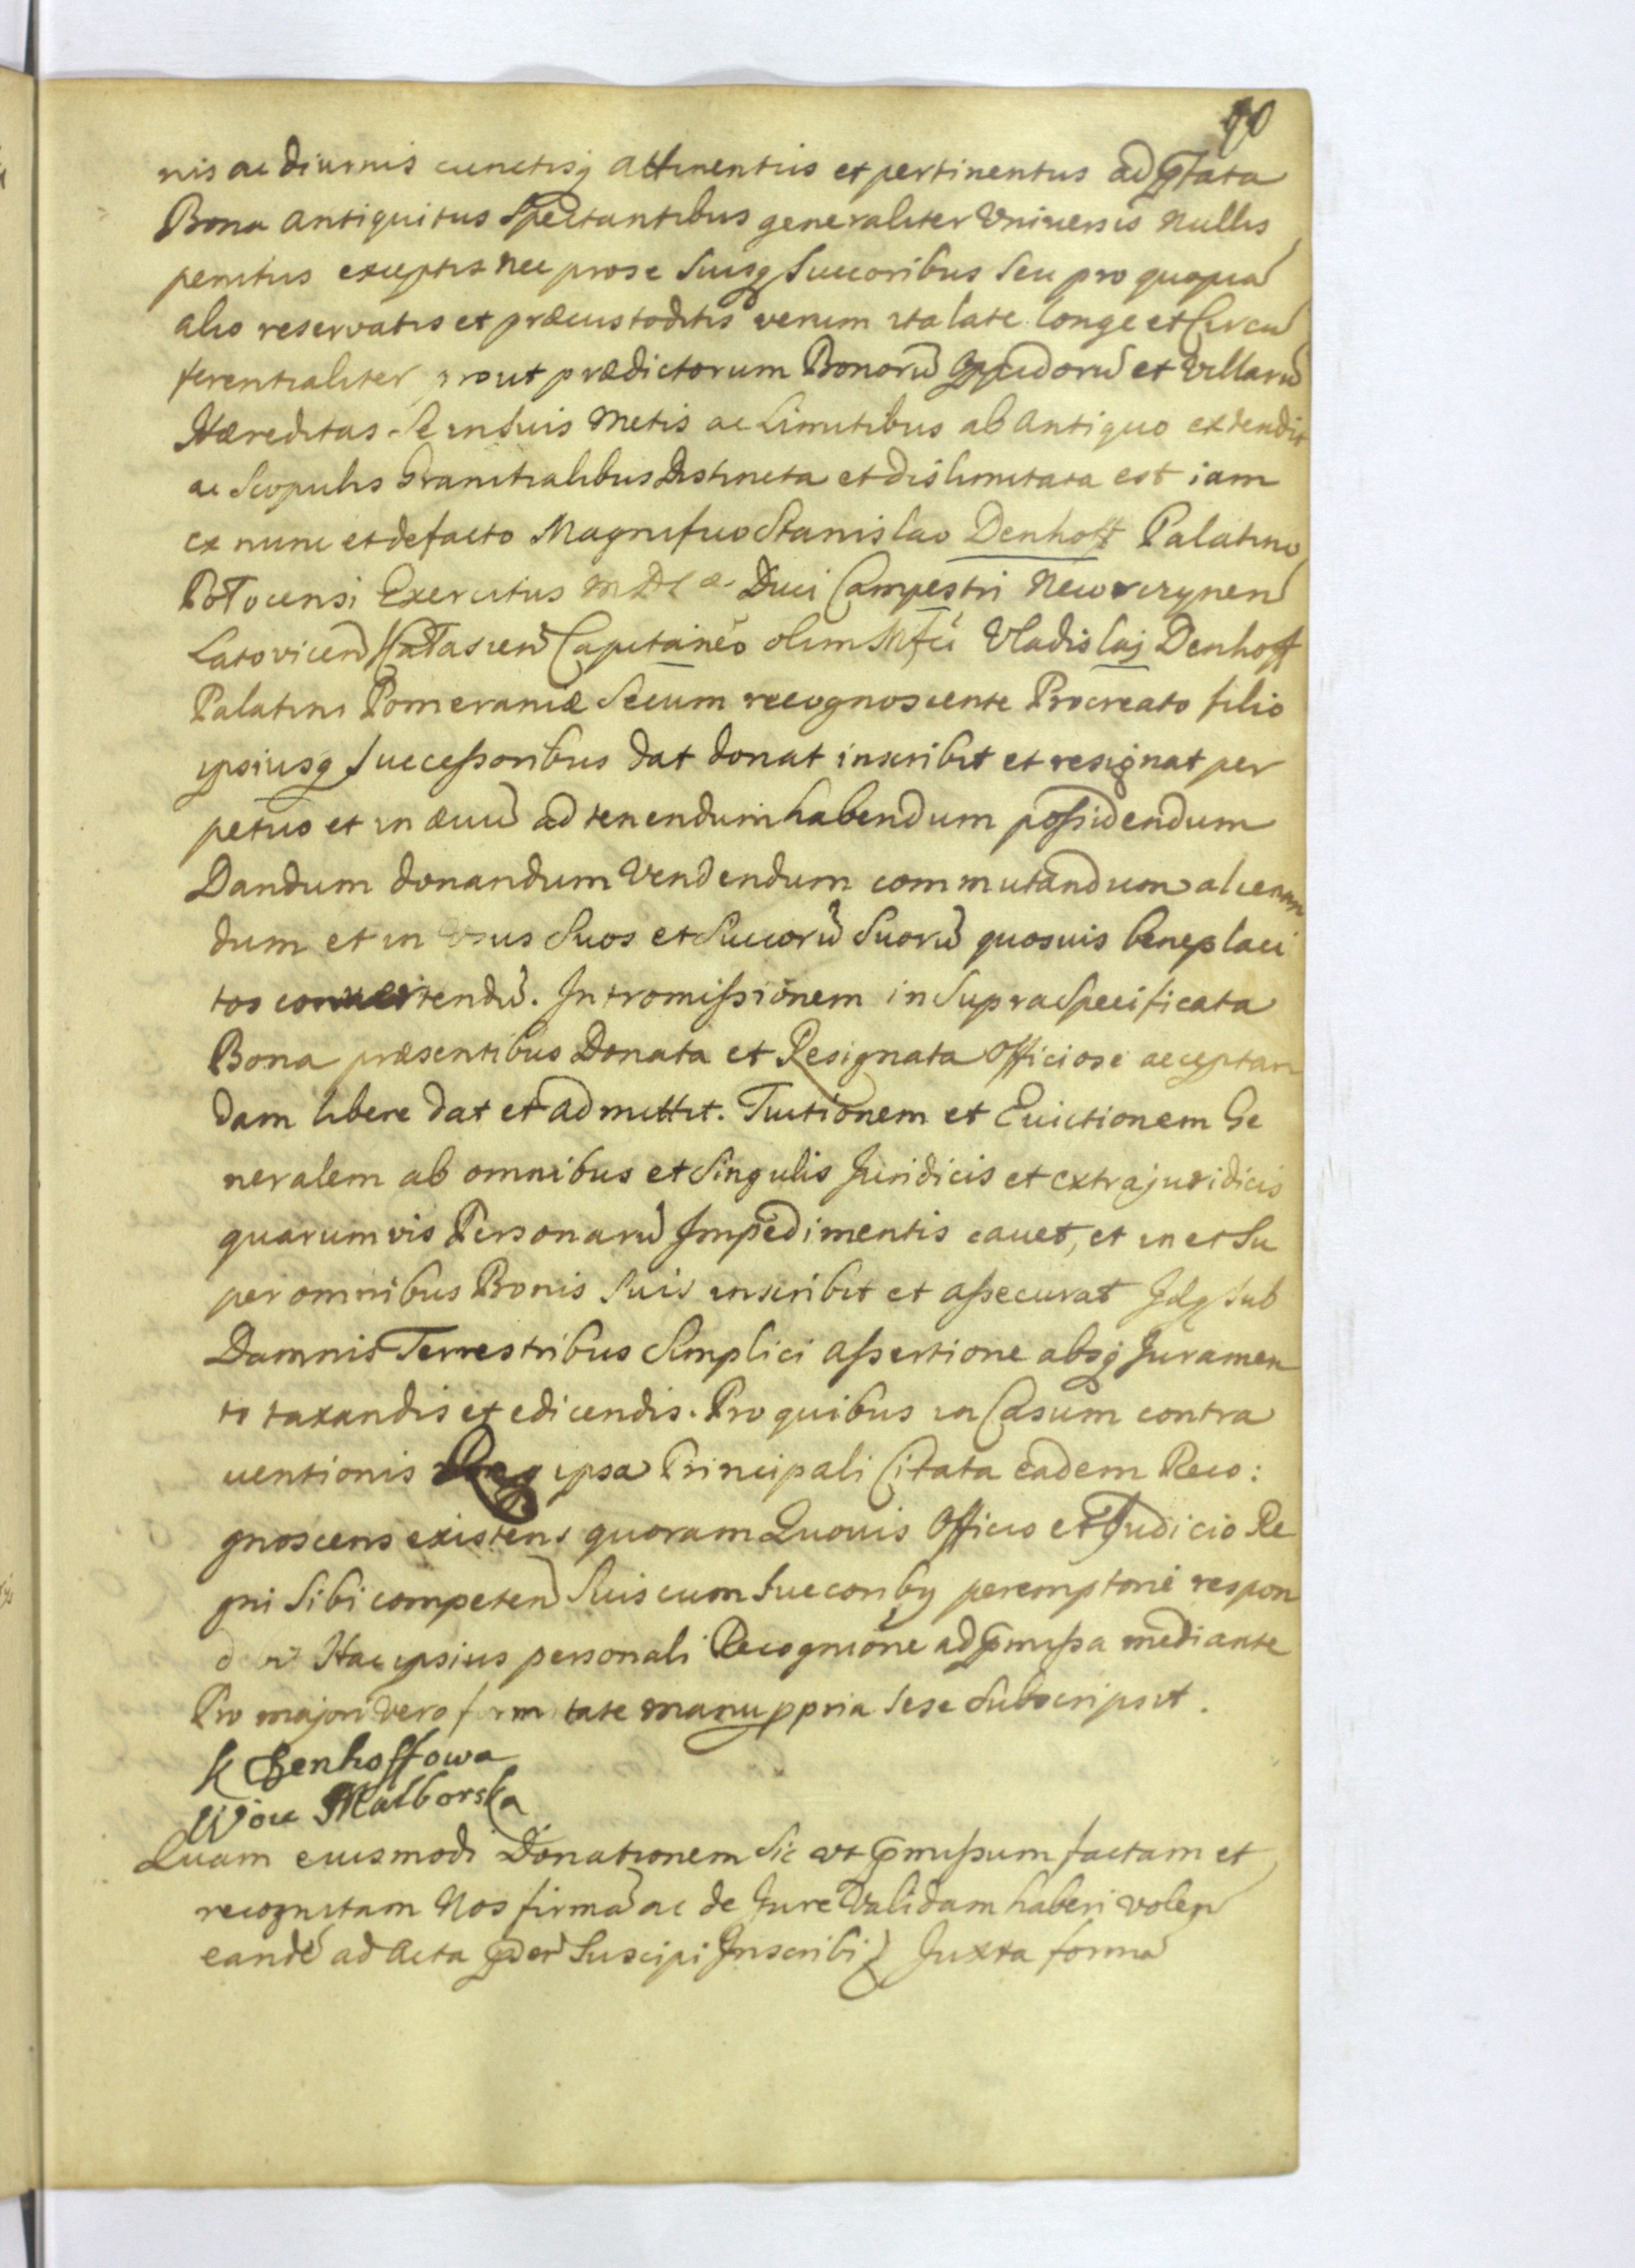 90
nis ac diurnis cunctisq attinentiis et pertinentiis ad pstata
Bona antiquitus Spectantibus generaliter Vniuersis Nullis
penitus exceptis nec pro se Suisq Succoribus Seu pro quopiā
alio reservatis et præcustoditis verum ita late longe et Circū
ferentialiter, prout prædictorum Bonorū Oppidorū et Villarū
Hæreditas Se in Suis Metis ac Limitibus ab Antiquo extendit
ac Scopulis Granitialibus Distincta et dislimitata est iam
ex nunc et de facto Magnifico Stanislao Denhoff Palatino
Polocensi Exercitus M D L æ Duci Campestri Nowo
Latovicen Capitaneo olim Mfci Vladislaj Denhoff
Palatini Pomeraniæ Secum recognoscente Procreato filio
ipsiusq Successoribus dat donat inscribit et resignat per
petuo et in æuū ad tenendum habendum possidendum
Dandum donandum Vendendum commutandum alienan
dum et in Vsus Suos et Succorū Suorū quosuis beneplaci
tos convertendū. Intromissionem in Supra Specificata
Bona præsentibus Donata et Resignata Officiose acceptan
dam libere dat et admittit. Tuitionem et Euictionem Ge
neralem ab omnibus et Singulis Juridicis et extrajuridicis
quarumvis Personarū Impedimentis cauet, et in et Su
per omnibus Bonis Suis inscribit et assecurat Idq Sub
Damnis Terrestribus Simplici assertione absq Juramen
to taxandis et edicendis. Pro quibus in Casum contra
uentionis ipsa Principali Citata eadem Reco:
gnoscens existens quoram Quouis Officio et Judicio Re
gni Sibi competen Suis cum Succoribq peremptorie respon
Hac ipsius personali Recognione ad pmissa mediante
Pro majori vero firmitate manu ppria Sese Subscripsit.
K Denhoffowa
Woie Malborska
Quam eiusmodi Donationem Sic vt pmissum factam et
recognitam Nos firmā ac de Jure Validam haberi volen
eandē ad Acta pden Suscipi Inscribi Juxta formā